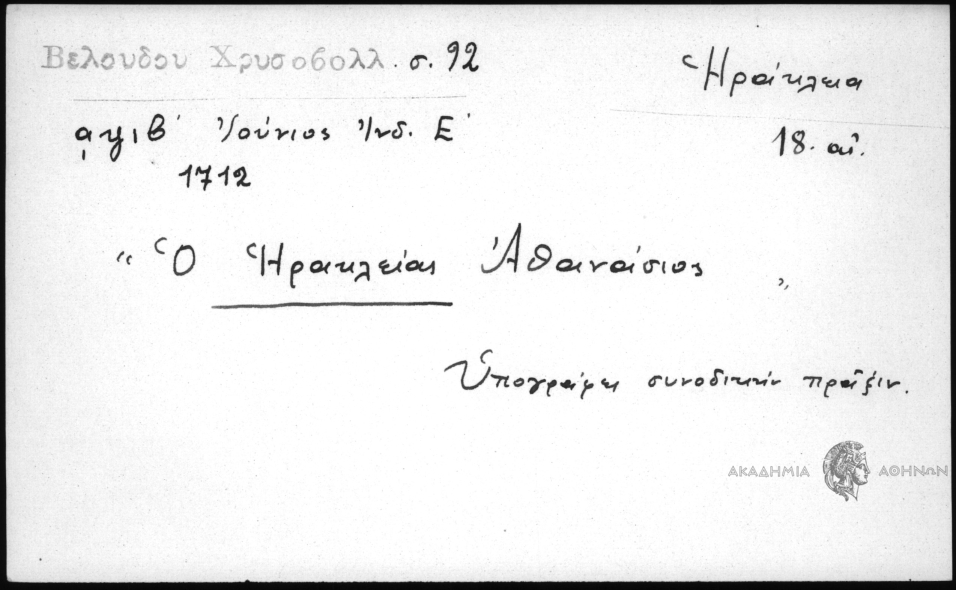 Βελουδου Χρυσοβολλ. σ. 92
Ἡράκλεια
͵αψιβ΄ Ἰούνιος Ἰνδ. Ε΄
18. αἰ.
1712
“ Ὁ Ἡρακλείας Ἀθανάσιος „
Ὑπογράφει συνοδικὴν πρᾶξιν.
ΑΚΑΔΗΜΙΑ ΑΘΗΝΩΝ